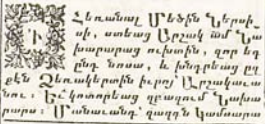 Ի Հեռանալ Մեծին Ներսի-
սի, ստեաց Արշակ ՛ի մ Նա
խարարաց ուխտին, զոր եդ
ընդ նոսա, և խնդրեաց ըզ
քէն Ձեռակերտին իւրոյ՝ Արշակաւա
նու : Եւ կոտորեաց զբազում Նախա
րարս : Մանաւանդ զազգն Կամսարա